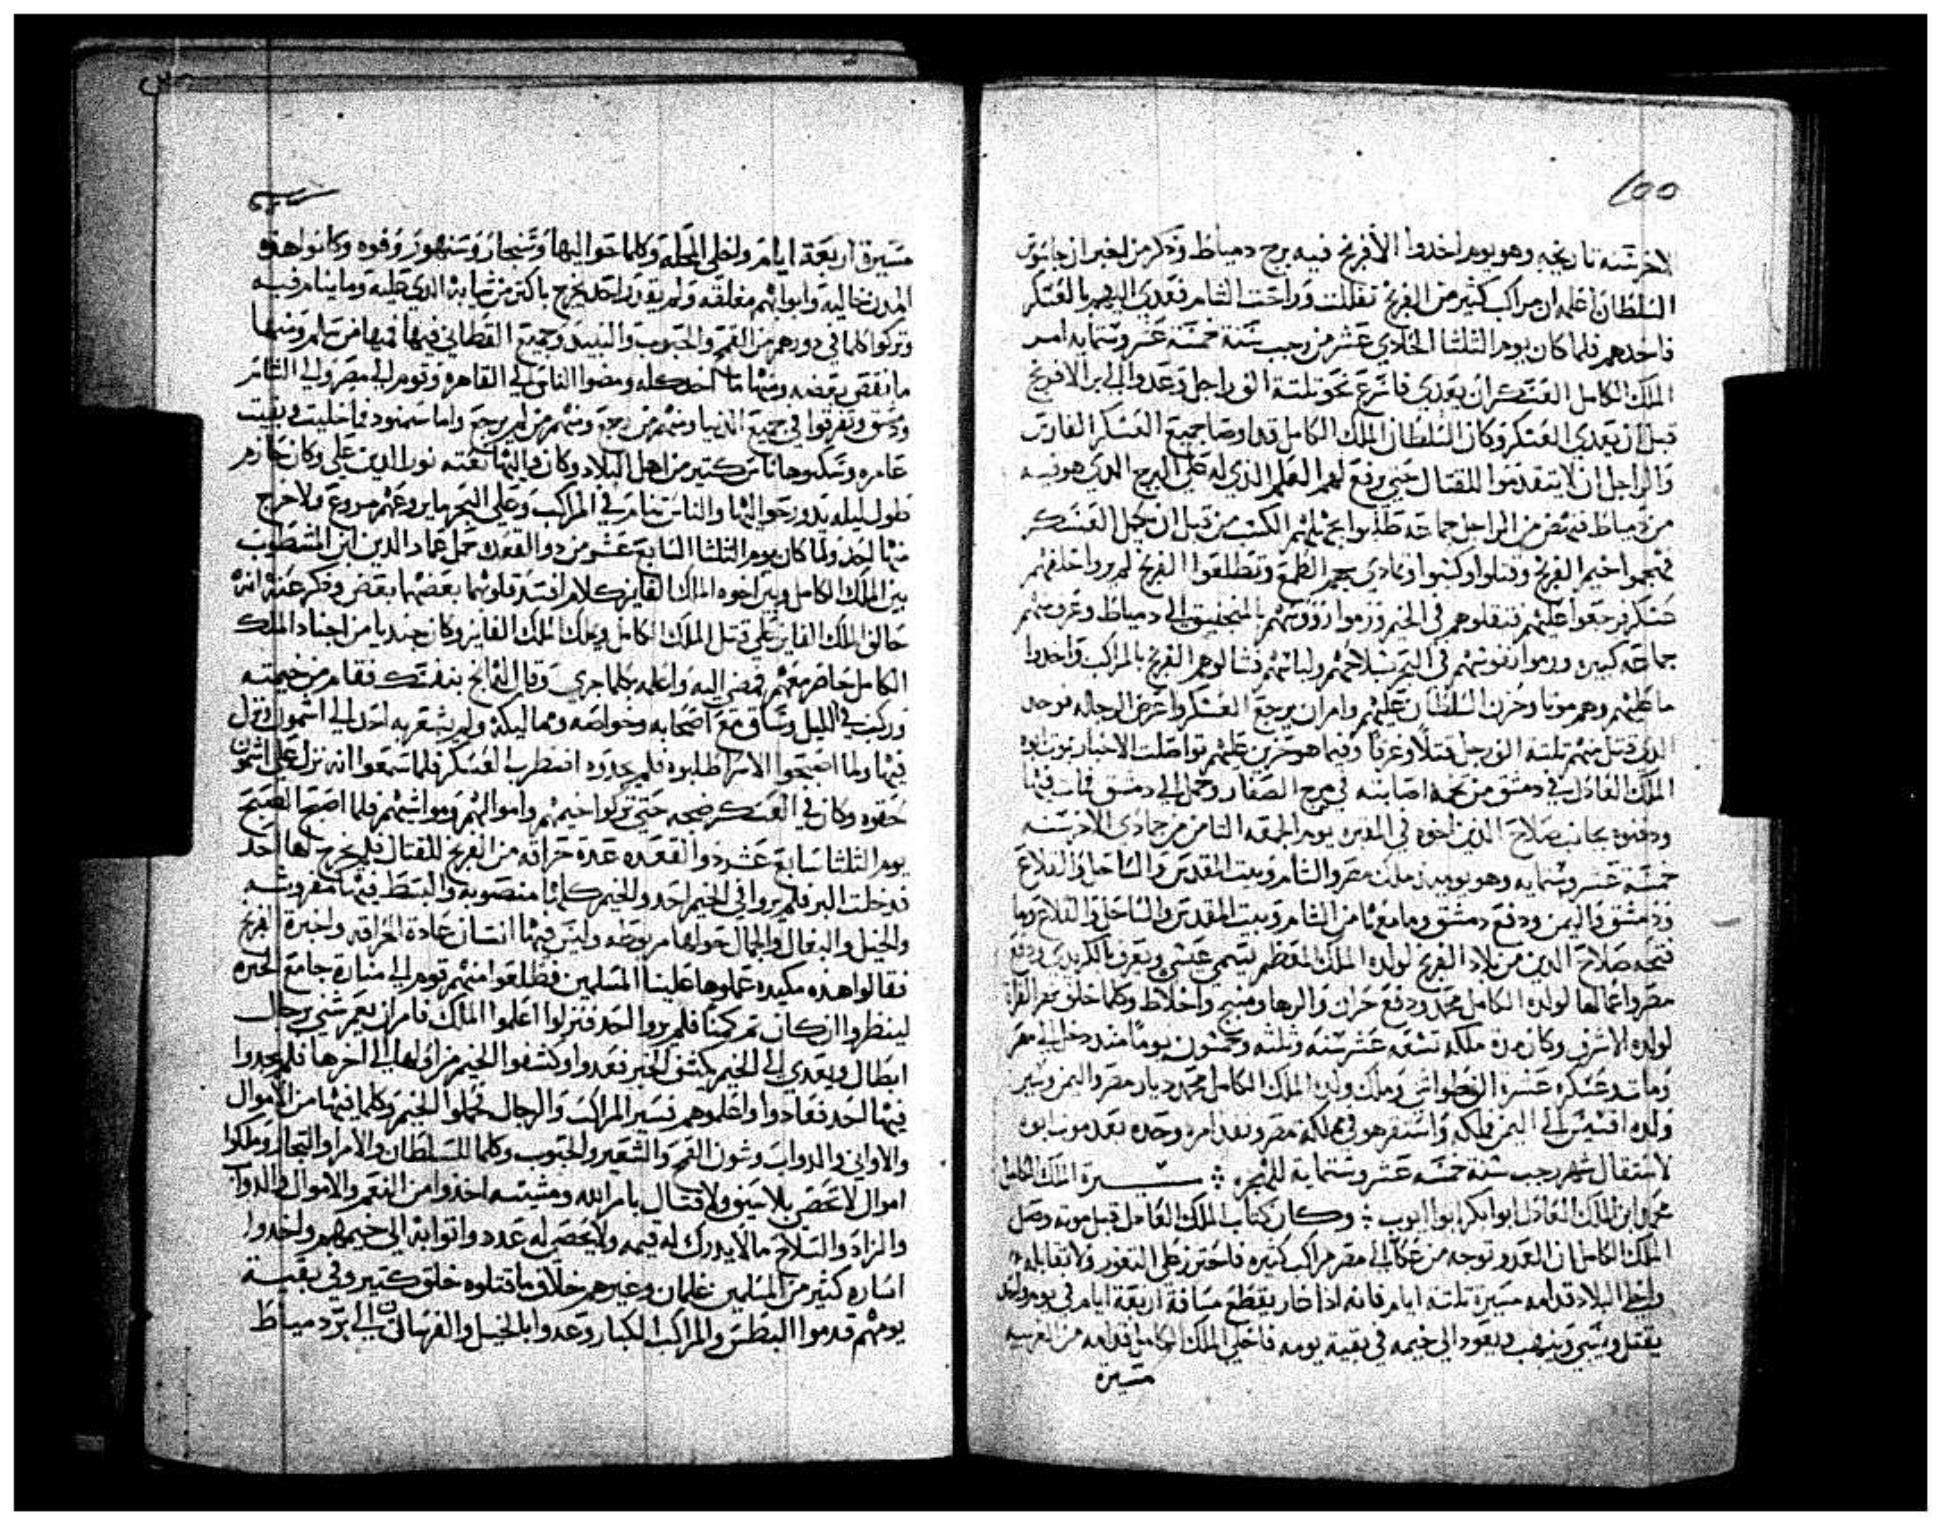 ١٥٥
الاخر سنة تاريخه وهو يوم اخدوا الافرنج فيه برج دمياط وذكر من الخبر ان جاسوس
السلطان اعلمه ان مراكب كثير من الفرنج تفللت وراحت الشام فتعدى اليهم بالعسكر
فاخدهم فلما كان يوم الثلثا الحادي عشر من رجب سنة خمسة عشر وستمايه امر
الملك الكامل العسكر ان يعدي فاسرع نحو تلتة الف راجل وعدوا الي بر الافرنج
قبل ان يعدي العسكر وكان السلطان الملك الكامل قد اوصا جميع العسكر الفارس
والراجل ان لا يتقدموا للقتال حتى يرفع لهم العلم الذي له على البرج الدي هو فيه
من دمياط فنهض من الراجل جماعة طلبوا الكسب من قبل ان يكمل العسكر
فهجموا خيم الفرنج وقتلوا وكسبوا وتمادي بهم الطمع وتطلعوا الفرنج لم يروا خلفهم
عسكر فرجعوا عليهم فقتلوهم في الخيم ورموا رووسهم بالمنجنيق الى دمياط وغرق منهم
جماعة كبيره ورموا نفوسهم في اليم بسلاحهم ولباسهم فشالوهم الفرنج بالمراكب واخدوا
ما عليهم وهم موتا وحزن السلطان عليهم وامر ان يرجع العسكر واعرض الرجاله فوجد
الدي قتل منهم تلتة الف رجل قتلا وغرقا وفيما هو حزين عليهم تواصلت الاخبار بموت ابوه
الملك العادل في دمشق من تخمه اصابته في مرج الصفار وحمل الى دمشق فمات فيها
ودفنوه بجانب صلاح الدين اخوه في المقبره يوم الجمعه الثامن من جمادي الاخر سنة
خمسة عشر وستمايه وهو يوميذ ملك مصر والشام وبيت المقدس والساحل والقلاع
ودمشق واليمن ودفع دمشق وما معها من الشام وبيت المقدس والساحل والقلاع وما
فتحه صلاح الدين من بلاد الفرنج لولده الملك المعظم يسمى عيسى ويعرف بالكريدي ودفع
مصر واعمالها لولده الكامل محمد ودفع حران والرها ومنبج واخلاط وكلما خلف نهر الفراة
لولده الاشرف وكان مدة ملكه تسعه عشر سنه وثلثه وخمسون يوما منذ دخل الى مصر
ومات عسكره عشرة الف طواشي وملك ولده الملك الكامل محمد ديار مصر واليمن وسير
ولده اقسيس الى اليمن فملكه واستقر هو في مملكة مصر ونفذ امره وحده بعد موت ابوه
لاستقبال شهر رجب سنة خمسه عشر وستماية للهجره سيرة الملك الكامل
محمد ابن الملك العادل ابوا بكر ابوا ايوب وكان كتاب الملك العادل قبل موته وصل
الملك الكامل ان العدو توجه من عكا الى مصر مراكب كتيره فاحترز على الثغور ولا تقابله
واخلي البلاد قدامه مسيرة تلتة ايام فانه اذا غار يقطع مسافة اربعة ايام في يوم واحد
يقتل ويسبي وينهب ويعود الى خيمه في بقية يومه فاخلي الملك الكامل قدامه من الغربيه
مسيرة
مسيرة اربعة ايام واخلي المحله وكلما حواليها وسنجار وسنهور وفوه وكانوا هذه
المدن خاليه وابوابهم مغلقه ولم يقدر احد يخرج باكتر من ثيابه الدي عليه وما ينام فيه
وتركوا كلما في دورهم من القمح والحبوب والنبيد وجميع القطاني فيها فمنها من سلم ومنها
ما نقص بعضه ومنها ما اخد كله ومضوا الناس الي القاهرة وقوم الي مصر والي الشام
ودمشق وتفرقوا في جميع الدنيا ومنهم من رجع ومنهم من لم يرجع واما سمنود فما اخليت وبقيت
عامره وسكنوها ناس كتير من اهل البلاد وكان واليها نعته نور الدين علي وكان حازم
طول ليله يدور حواليها والناس تنام في المراكب وعلى البحر ما يروعهم مروع ولا خرج
منها احد ولما كان يوم الثلثا السابع عشر من دو القعده حمل عماد الدين ابن المشطوب
بين الملك الكامل وبين اخوه الملك الفايز كلام افسد قلوبهما بعضهما بعض وذكر عنه انه
حالف الملك الفايز على قتل الملك الكامل وتملك الملك الفايز وكان جنديا من اجناد الملك
الكامل حاضر معهم فمضى اليه واعلمه بكلما جري وقال انج بنفسك فقام من خيمته
وركب في الليل وساق مع اصحابه وخواصه ومماليكه ولم يشعر به احد الى اشمون ونزل
فيها ولما اصبحوا الامرا طلبوه فلم يجدوه اضطرب العسكر فلما سمعوا انه نزل على اشمون
لحقوه وكان في العسكر ضجه حتى تركوا خيمهم واموالهم ومواشيهم فلما اصبح الصبح
يوم الثلثا سابع عشر ذو القعده عدة حراقه من الفرنج للقتال فلم يخرج لها احد
فدخلت البر فلم يروا في الخيم احد والخيم كلها منصوبه والبسط فيها مفروشه
والخيل والبغال والجمال حولها مربوطه وليس فيها انسان عادة الحراقه واخبرة الفرنج
فقالوا هذه مكيده عملوها علينا المسلمين فطلعوا منهم قوم الى منارة جامع الجيزه
لينظروا ان كان ثم كمينا فلم يروا احد فنزلوا اعلموا الملك فامر ان يعبر شيي رجال
ابطال ويعدي الى الخيم يكشف الخبر فعدوا وكشفوا الخيم من اولها الى اخرها فلم يجدوا
فيها احد فعادوا واعلموهم فسير المراكب والرجال حملوا الخيم وكلما فيها من الاموال
والاواني والدواب وشون القمح والشعير والحبوب وكلما للسلطان والامرا والتجار وملكوا
اموال لا تحصى بلا سيف ولا قتال بامر الله ومشيته اخذوا من النعم والاموال والدواب
والزاد والسلاح ما لا يدرك له قيمه ولا يحصى له عدد واتوا به الى خيمهم واخدوا
اساره كثير من المسلمين غلمان وغيرهم خلاف ما قتلوه خلق كتير وفي بقية
يومهم قدموا البطس والمراكب الكبار وعدوا بالخيل والفرسان الى بر دمياط